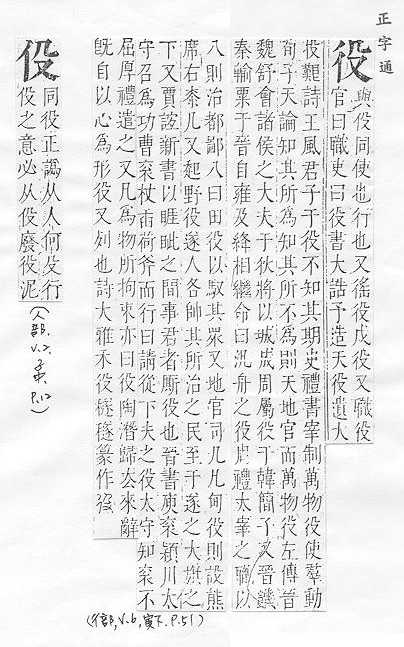 正字通
役
與伇同使也行也又徭役戍役又職役
官曰職吏曰役書大誥予造天役遺大
投艱詩王風君子于役不知其期史禮書宰制萬物役使羣動
荀子天論知其所為知其所不為則天地官而萬物役左傳晉
魏舒會諸侯之大夫于狄將以城成周屬役于韓簡子又晉饑
秦輸粟于晉自雍及絳相繼命曰汎舟之役周禮太宰之職以
八則治都鄙八曰田役以馭其眾又地官司几几甸役則設熊
席右桼几又起野役遂人各帥其所治之民至于遂之大旗之
下又賈誼新書以睚眦之間事君者厮役也晉書庾袞潁川太
守召為功曹袞杖臿荷斧而行曰請從下夫之役太守知袞不
屈厚禮遣之又凡為物所拘束亦曰役陶潛歸去來辭
旣自以心為形役又列也詩大雅禾役穟穟篆作役
(彳部, V.6, 寅下, P.51)
伇
同役正譌从人何殳行
役之意必从伇廢役泥
(人部, V.2, P.12)